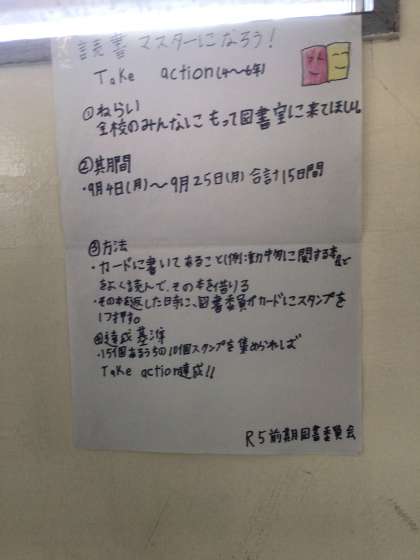 読書マスターになろう!
Take action(4〜6年)
①ねらい
全校のみんなにもって図書室に来てほしい。
②期間
・9月4日(月)〜9月25日(月) 合計15日間
③方法
・カードに書いてあること(例:動物に関する本)など
をよく読んで、その本を借りる
・その本を返した日時に、図書委員がカードにスタンプを
1つ押す。
④達成基準
・15個あるうちの10個スタンプを集められれば
Take action達成!!
R5前期図書委員会